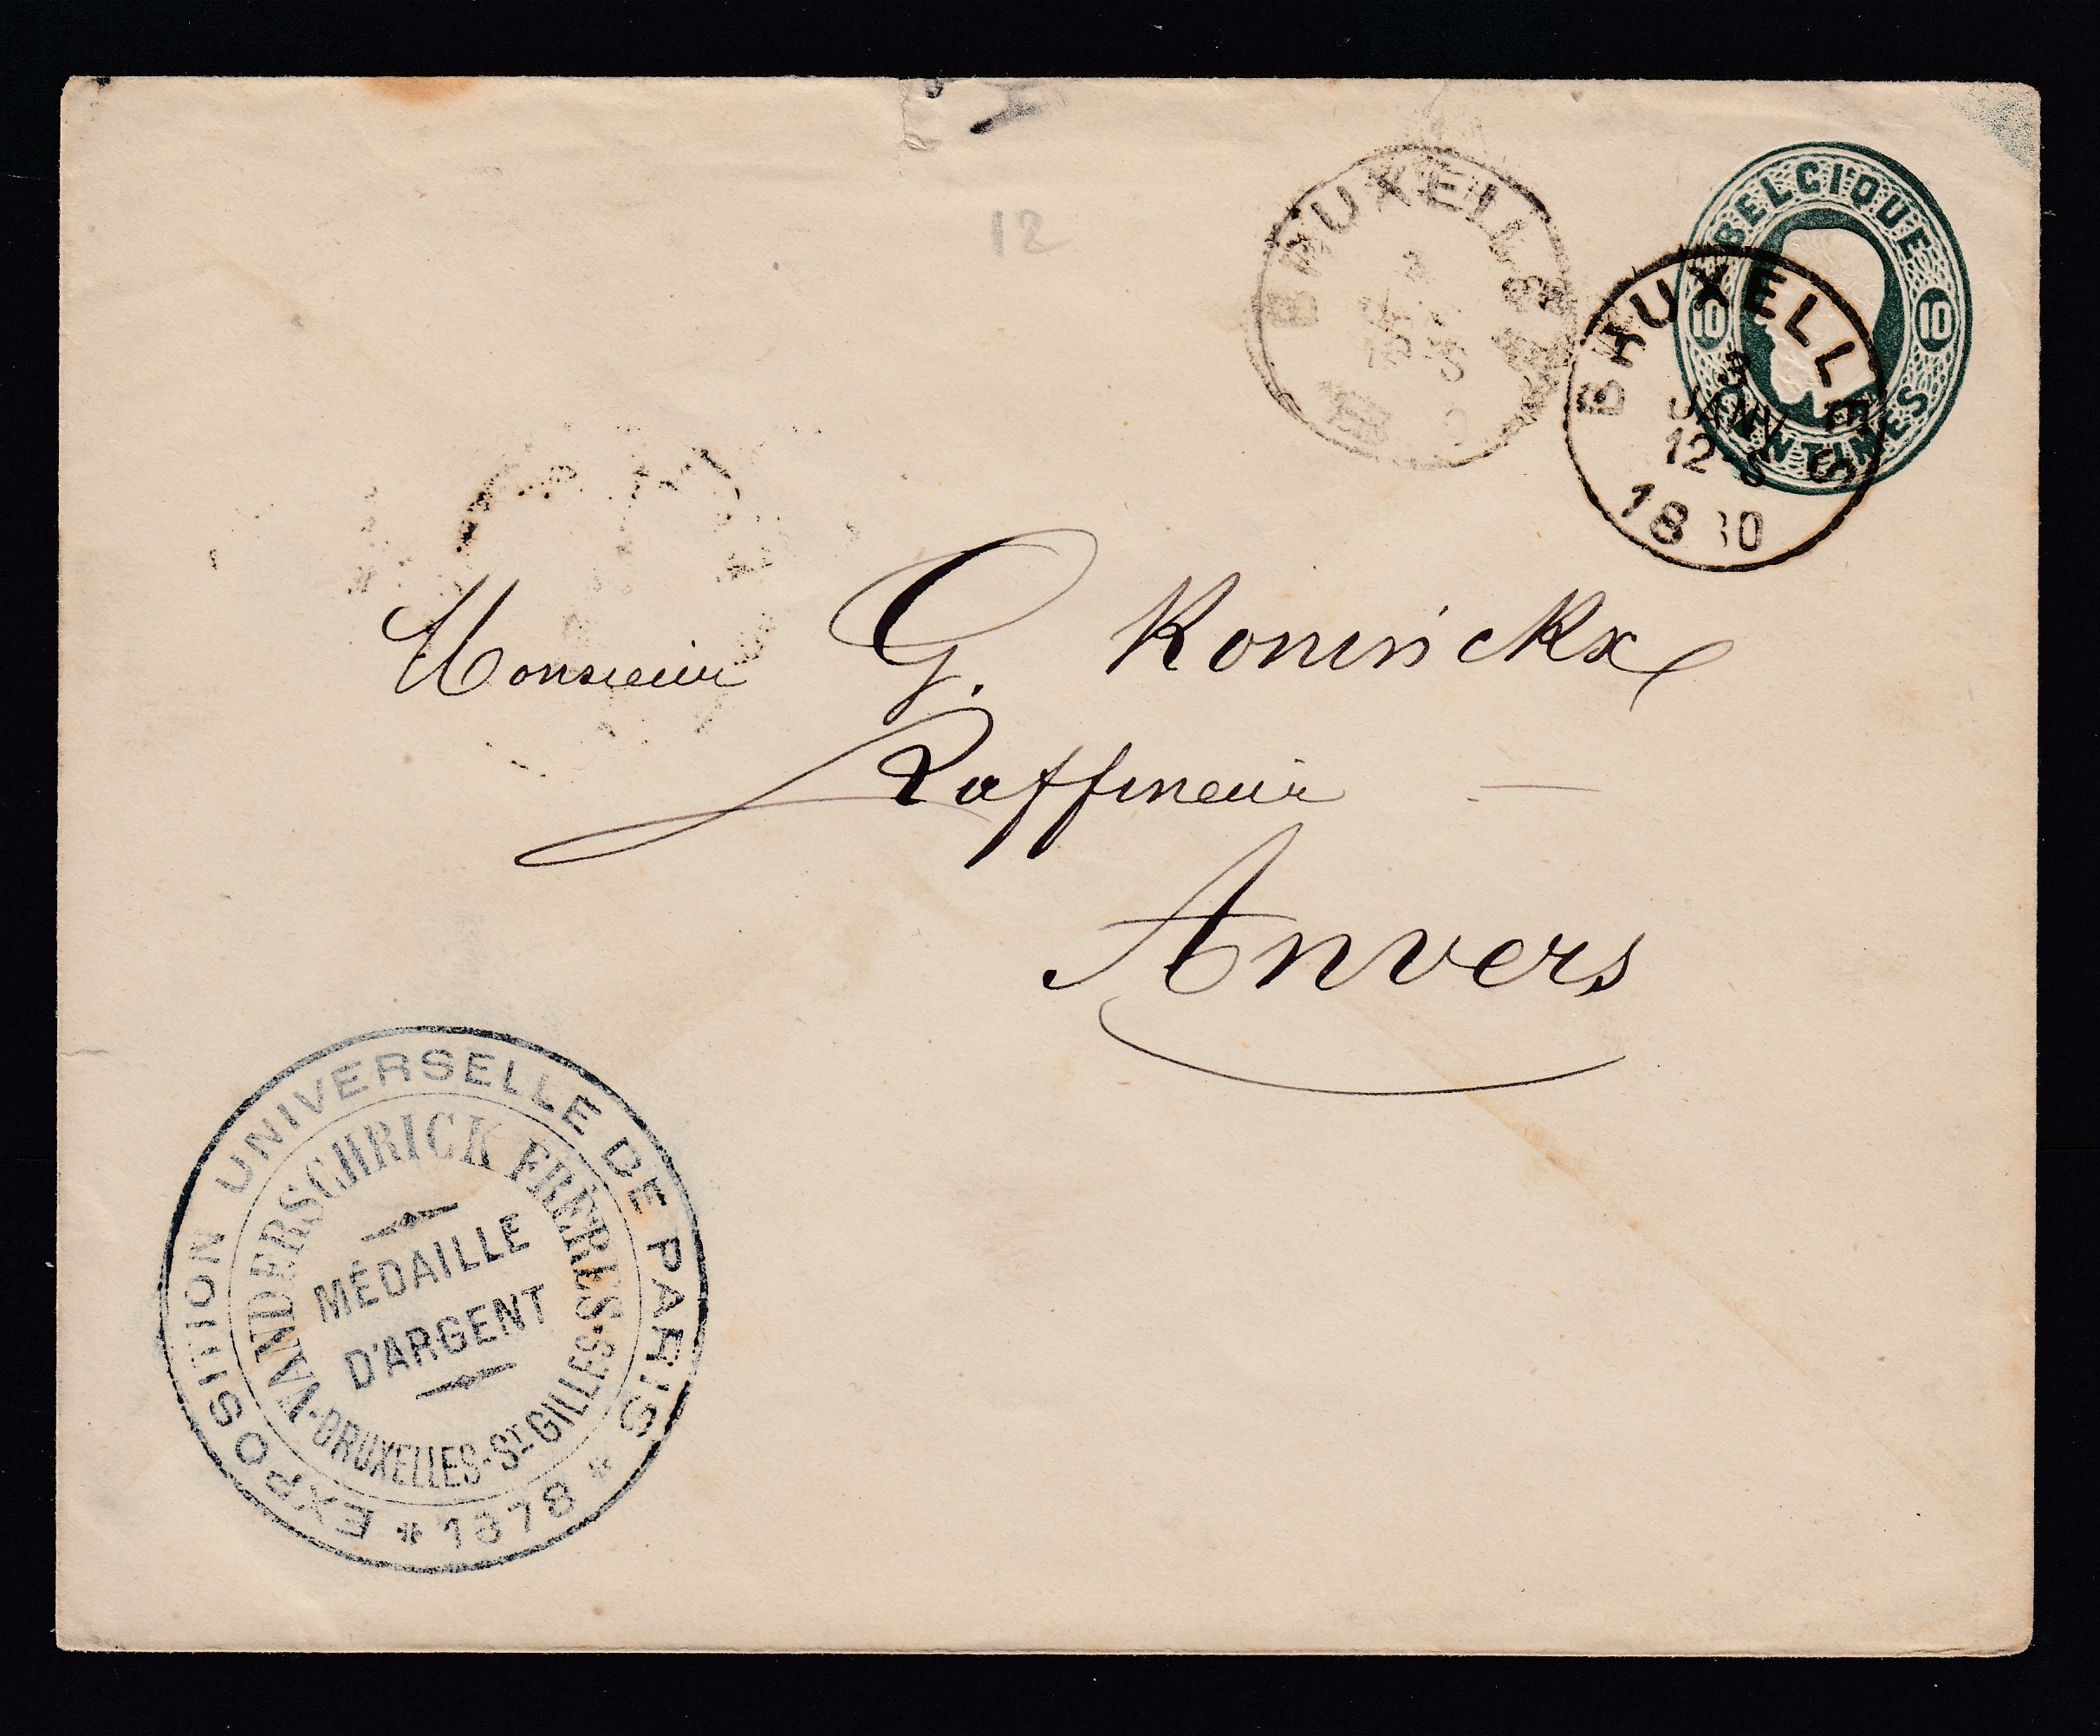 12
BRUXELLES
BELGIQUE
10 10
CENTIMES
BRUXELLES
3
JANV
12-5
18 80
Monsieur G. Koninckx
Raffineur —
Anvers
EXPOSITION UNIVERSELLE DE PARIS
* 1878 *
VANDERSCHRICK FRÈRES
-BRUXELLES-ST GILLES-
MÉDAILLE
D'ARGENT